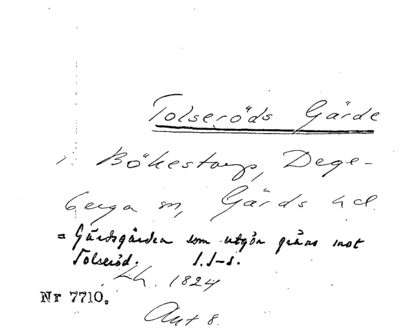 Tolseröds Gärde
Bökestorp, Dege-
berga sn, Gärds hd.
= Gärdsgården som utgör gräns mot
Tolseröd. I.I-s.
Lh. 1824
Nr 7710.
Akt 8.